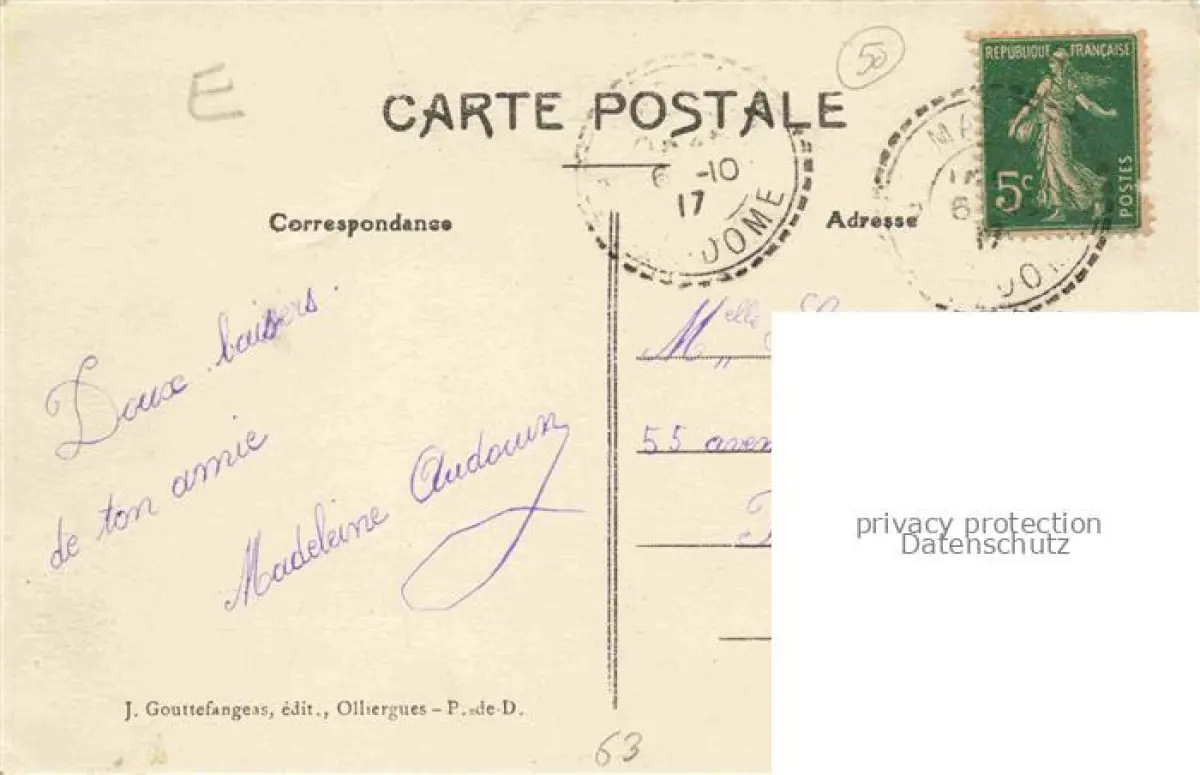 E
50
CARTE POSTALE
REPUBLIQUE FRANÇAISE
5c
POSTES
6 -10
17
DOME
MA
6
DOM
Correspondance
Adresse
Doux baisers.
de ton amie
Madeleine Audouin
Melle
55 aven
privacy protection
Datenschutz
J. Gouttefangeas, édit., Olliergues – P.-de-D.
63